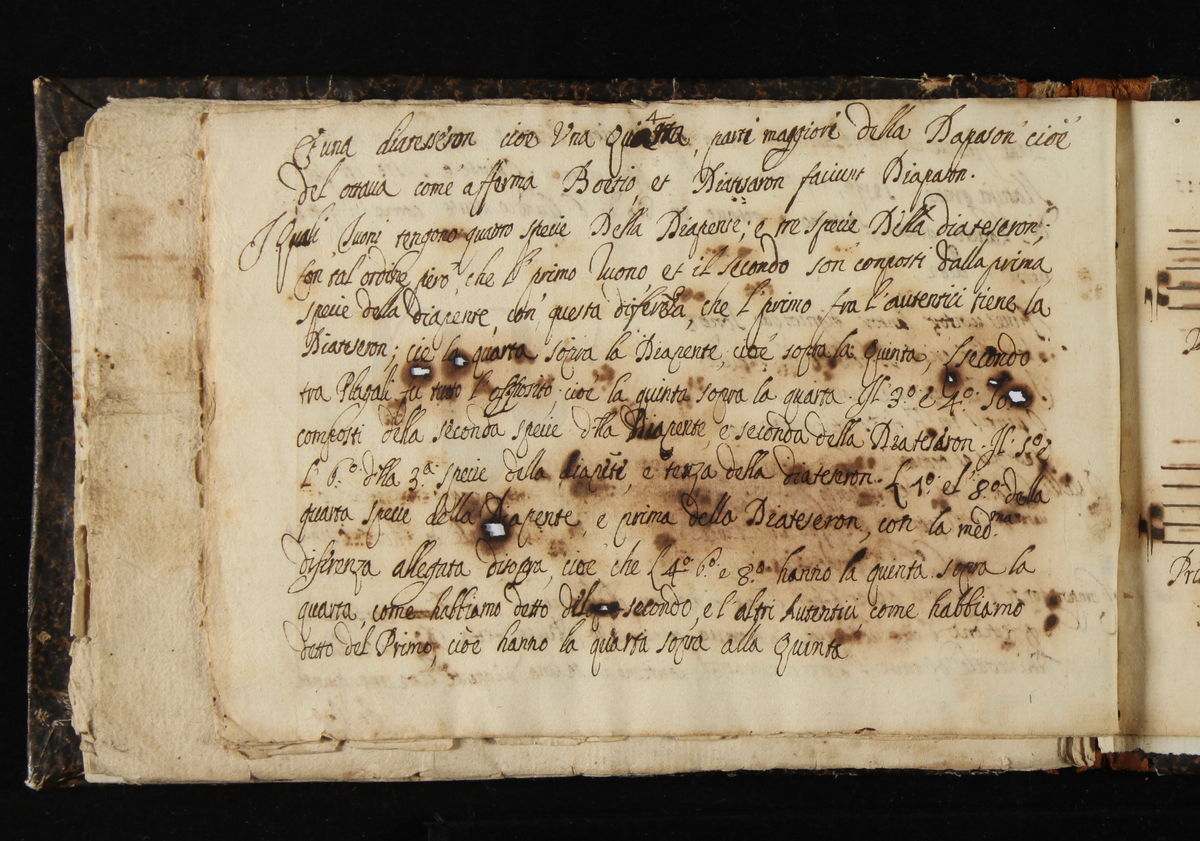 Et una diatesseron cioè Una Quarta, parti maggiori della Diapason cioè
del ottava come afferma Boetio, et Diatesaron faciunt Diapason.
I Quali Tuoni tengono quatro specie Della Diapente; e tre specie Della diateseron;
con tal ordine però, che l' primo Tuono, et il secondo son composti dalla prima
specie della Diapente, con questa diferenza, che l' primo fra l' autentici tiene la
Diateseron; cioè la quarta sopra la Diapente, cioè sopra la quinta, secondo
tra Plagali tutto l' opposito cioè la quinta sopra la quarta. Il 3.º e 4.º so
composti della seconda specie d'lla Diapente, e seconda della Diatesaron. Il 5.º e
l' 6.º d'lla 3.ª specie della diapente, e terza della diateseron. 7.º el' 8.º della
quarta specie della Diapente, e prima della Diateseron, con la med.ma
diferenza allegata disopra, cioè che 4.º 6.º e 8.º hanno la quinta sopra la
quarta, come habbiamo detto del secondo, e l' altri Autentici, come habbiamo
detto del Primo, cioè hanno la quarta sopra alla Quinta